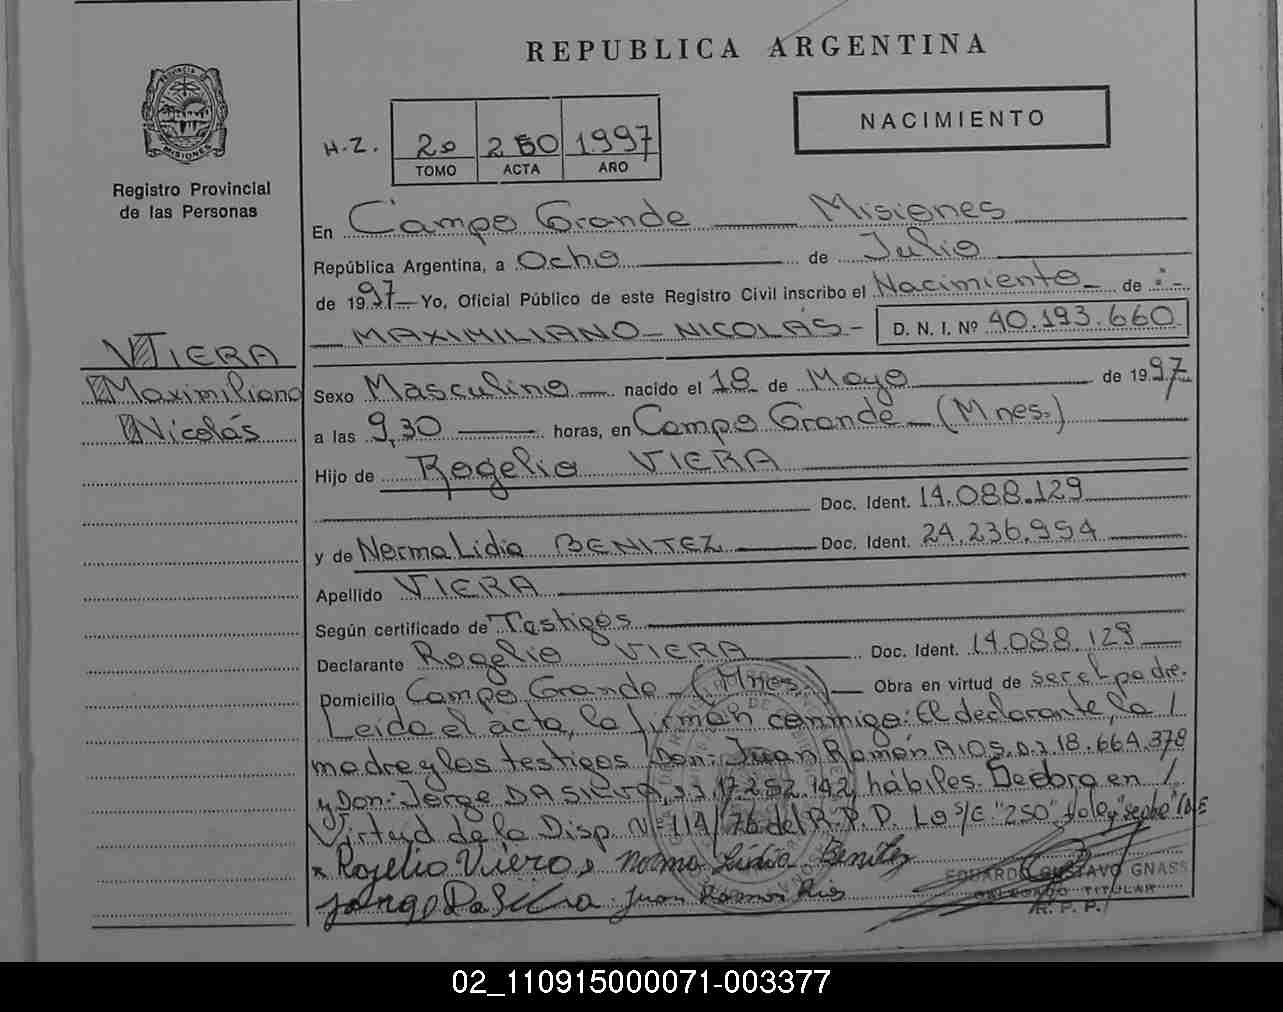 REPUBLICA ARGENTINA
PROVINCIA DE MISIONES
Registro Provincial
de las Personas
H.Z. 20 250 1997
TOMO ACTA AÑO
NACIMIENTO
En Campo Grande Misiones
República Argentina, a Ocho de Julio
de 1997 Yo, Oficial Público de este Registro Civil inscribo el Nacimiento de
MAXIMILIANO NICOLÁS D. N. I. Nº 40.193.660
VIERA
Maximiliano
Nicolás
Sexo Masculino nacido el 18 de Mayo de 1997
a las 9,30 horas, en Campo Grande (Mnes.)
Hijo de Rogelio VIERA
Doc. Ident. 14.088.129
y de Norma Lidia BENITEZ Doc. Ident. 24.236.954
Apellido VIERA
Según certificado de Testigos
Declarante Rogelio VIERA Doc. Ident. 14.088.129
Domicilio Campo Grande (Mnes.) Obra en virtud de ser el padre.
Leida el acta, la firman conmigo: El declarante, la /
madre y los testigos Don: Juan Ramón RIOS, D.I 18.664.378
y Don: Jorge DA SILVA, D.I 17.252.142, hábiles. Se obra en /
Virtud de la Disp. Nº 114/76 del R.P.P. Lo S/E "250"
Rogelio Viera Norma Lidia Benitez
Jorge Da Silva Juan Ramon Rios
EDUARDO GUSTAVO GNASS
DELEGADO TITULAR
R. P. P.
02_110915000071-003377